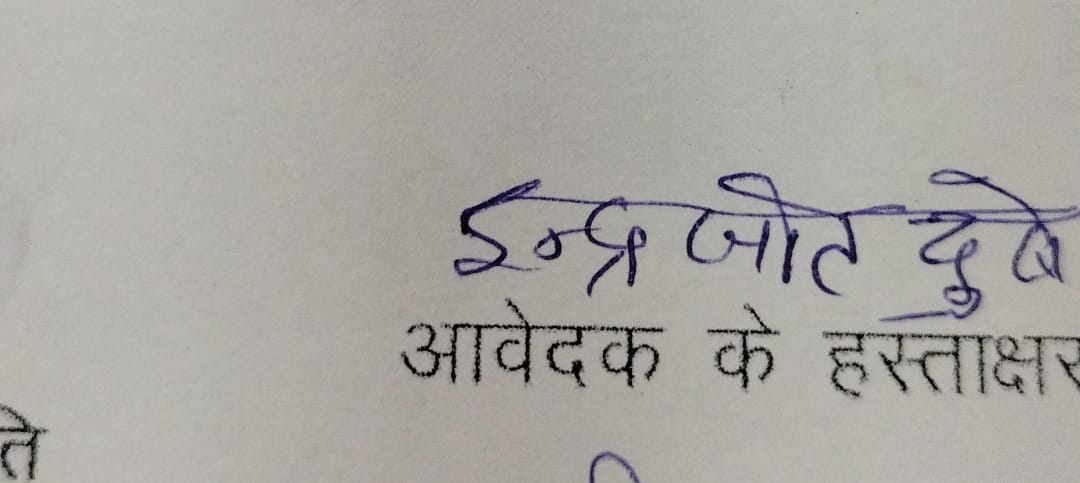 इन्द्रजीत दुबे
आवेदक के हस्ताक्षर
ते